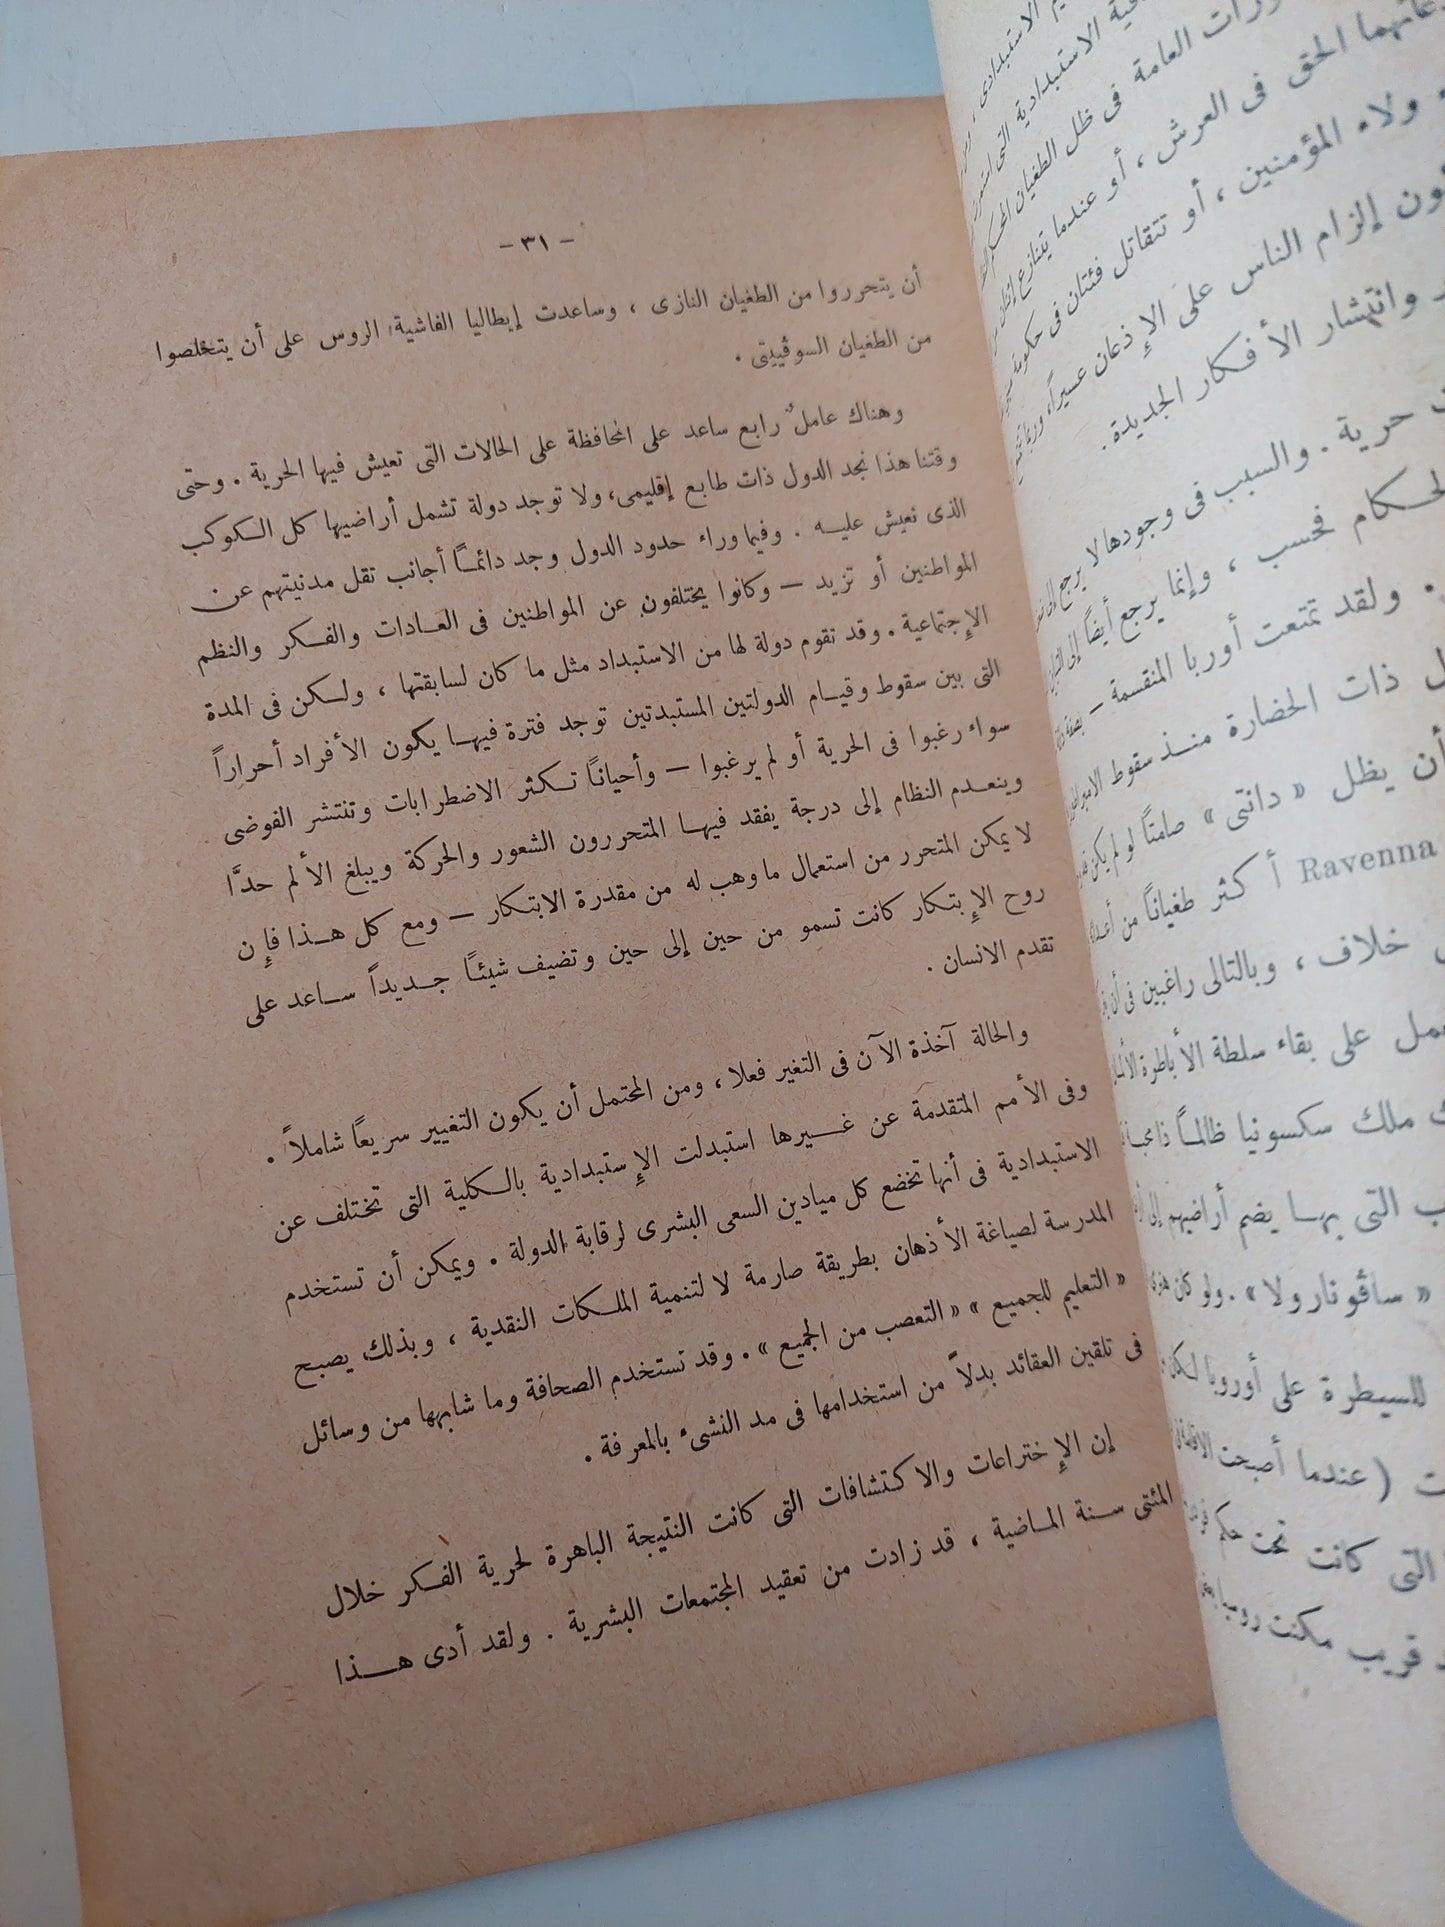 - ٣١ -
أن يتحرروا من الطغيان النازى ، وساعدت إيطاليا الفاشية الروس على أن يتخلصوا
من الطغيان السوڤييتى .
وهناك عاملٌ رابع ساعد على المحافظة على الحالات التى تعيش فيها الحرية . وحتى
وقتنا هذا نجد الدول ذات طابع إقليمى، ولا توجد دولة تشمل أراضيها كل الكوكب
الذى نعيش عليه . وفيما وراء حدود الدول وجد دائماً أجانب تقل مدنيتهم عن
المواطنين أو تزيد — وكانوا يختلفون عن المواطنين فى العادات والفكر والنظم
الإجتماعية . وقد تقوم دولة لها من الاستبداد مثل ما كان لسابقتها ، ولكن فى المدة
التى بين سقوط وقيام الدولتين المستبدتين توجد فترة فيها يكون الأفراد أحراراً
سواء رغبوا فى الحرية أو لم يرغبوا — وأحياناً تكثر الاضطرابات وتنتشر الفوضى
وينعدم النظام إلى درجة يفقد فيها المتحررون الشعور والحركة ويبلغ الألم حدًّا
لا يمكن المتحرر من استعمال ما وهب له من مقدرة الابتكار — ومع كل هذا فإن
روح الإبتكار كانت تسمو من حين إلى حين وتضيف شيئاً جديداً ساعد على
تقدم الانسان .
والحالة آخذة الآن فى التغير فعلا ، ومن المحتمل أن يكون التغيير سريعاً شاملاً .
وفى الأمم المتقدمة عن غيرها استبدلت الإستبدادية بالكلية التى تختلف عن
الاستبدادية فى أنها تخضع كل ميادين السعى البشرى لرقابة الدولة . ويمكن أن تستخدم
المدرسة لصياغة الأذهان بطريقة صارمة لا لتنمية الملكات النقدية ، وبذلك يصبح
« التعليم للجميع » « التعصب من الجميع » . وقد تستخدم الصحافة وما شابهها من وسائل
فى تلقين العقائد بدلاً من استخدامها فى مد النشىء بالمعرفة .
إن الإختراعات والاكتشافات التى كانت النتيجة الباهرة لحرية الفكر خلال
المئتى سنة الماضية ، قد زادت من تعقيد المجتمعات البشرية . ولقد أدى هذا
العامة فى ظل الطغيان
الحق فى العرش ، أو عندما يتنازع
ولاء المؤمنين ، أو تتقاتل فئتان فى حكومة
إلزام الناس على الإذعان عسيراً،
وانتشار الأفكار الجديدة .
حرية . والسبب فى وجودها لا يرجع إلى
فحسب ، وإنما يرجع أيضاً إلى
. ولقد تمتعت أوربا المنقسمة —
ذات الحضارة منذ سقوط
أن يظل « دانتى » صامتاً لو لم يكن
Ravenna أكثر طغياناً من
خلاف ، وبالتالى راغبين فى أن
على بقاء سلطة الأباطرة
ملك سكسونيا ظالماً
التى بها يضم أراضيهم إلى
« ساڤونارولا » . ولو كان
للسيطرة على أوروبا
( عندما أصبحت
التى كانت تحت حكم
قريب مكنت روسيا